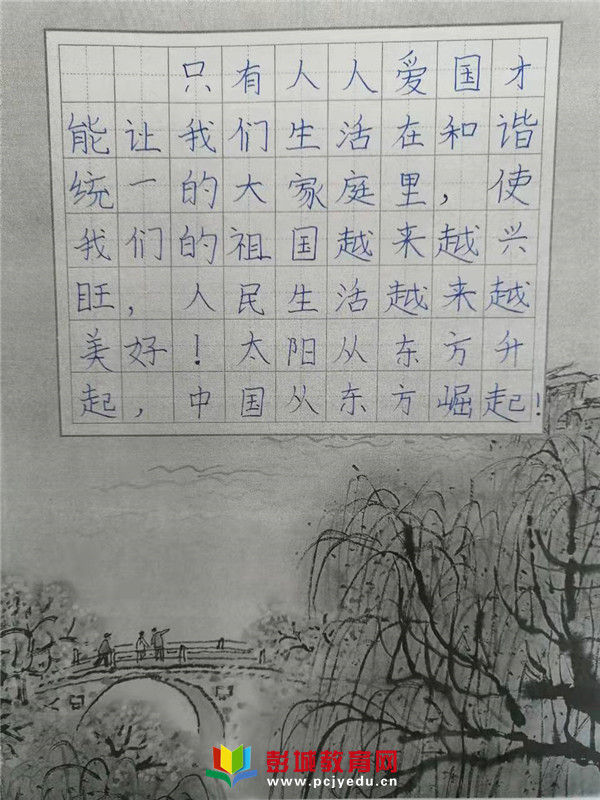 只有人人爱国才
能让我们生活在和谐
统一的大家庭里，使
我们的祖国越来越兴
旺，人民生活越来越
美好！太阳从东方升
起，中国从东方崛起！
彭城教育网
www.pcjyedu.cn